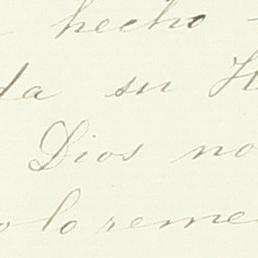 hecho
da su H
Dios no
lo reme